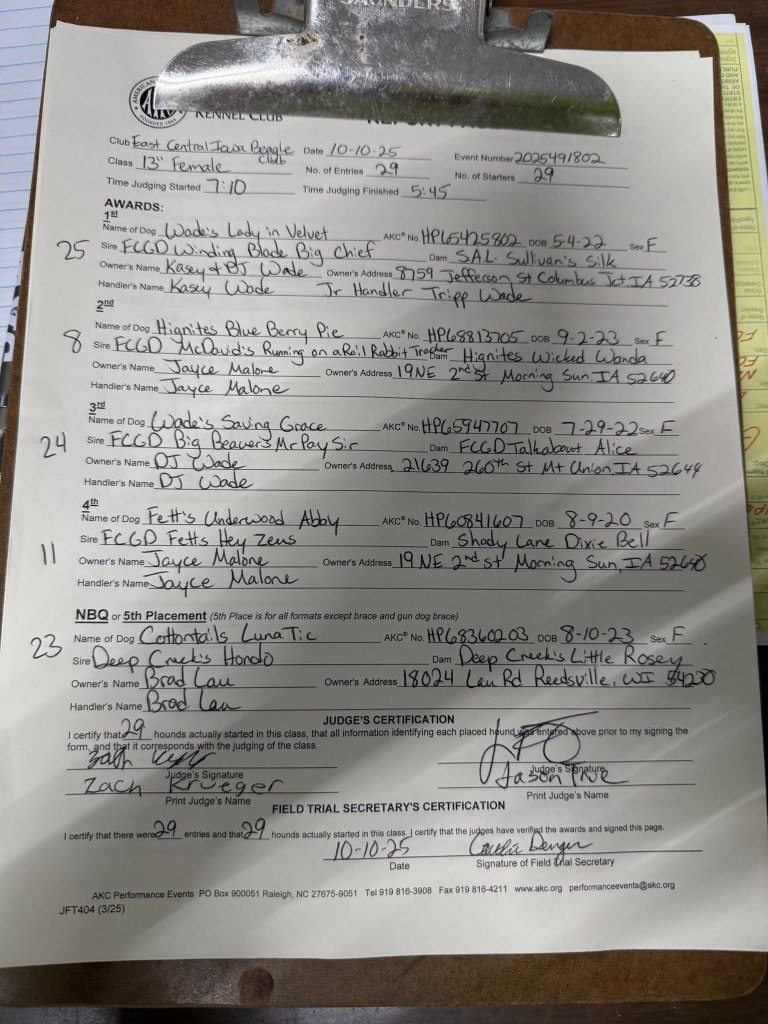 SAUNDERS
KENNEL CLUB
Club East Central Iowa Beagle Club Date 10-10-25 Event Number 2025491802
Class 13" Female No. of Entries 29 No. of Starters 29
Time Judging Started 7:10 Time Judging Finished 5:45
AWARDS:
1st
Name of Dog Wade's Lady in Velvet AKC® No. HP65425902 DOB 5-4-22 Sex F
25 Sire FCGD Winding Blade Big Chief Dam SAL. Sullivan's Silk
Owner's Name Kasey + DJ Wade Owner's Address 8759 Jefferson St Columbus Jct. IA 52738
Handler's Name Kasey Wade Jr Handler Tripp Wade
2nd
Name of Dog Hignites Blue Berry Pie AKC® No. HP68813705 DOB 9-2-23 Sex F
8 Sire FCGD McDavid's Running on a Rail Rabbit Tracker Dam Hignites Wicked Wanda
Owner's Name Jayce Malone Owner's Address 19 NE 2nd St Morning Sun, IA 52640
Handler's Name Jayce Malone
3rd
Name of Dog Wade's Saving Grace AKC® No. HP65947707 DOB 7-29-22 Sex F
24 Sire FCGD Big Beavers Mr Pay Sir Dam FCGD Talkabout Alice
Owner's Name DJ Wade Owner's Address 21639 260th St Mt Union, IA 52644
Handler's Name DJ Wade
4th
Name of Dog Fett's Underwood Abby AKC® No. HP60841607 DOB 8-9-20 Sex F
Sire FCGD Fetts Hey Zeus Dam Shady Lane Dixie Bell
11 Owner's Name Jayce Malone Owner's Address 19 NE 2nd St Morning Sun, IA 52640
Handler's Name Jayce Malone
NBQ or 5th Placement (5th Place is for all formats except brace and gun dog brace)
23 Name of Dog Cottontails LunaTic AKC® No. HP68360203 DOB 8-10-23 Sex F
Sire Deep Creek's Hondo Dam Deep Creek's Little Rosey
Owner's Name Brad Lau Owner's Address 18024 Lau Rd Reedsville, WI 54230
Handler's Name Brad Lau
JUDGE'S CERTIFICATION
I certify that 29 hounds actually started in this class, that all information identifying each placed hound was entered above prior to my signing the
form, and that it corresponds with the judging of the class.
Judge's Signature Judge's Signature
Zach Krueger Jason Tive
Print Judge's Name Print Judge's Name
FIELD TRIAL SECRETARY'S CERTIFICATION
I certify that there were 29 entries and that 29 hounds actually started in this class. I certify the judges have verified the awards and signed this page.
10-10-25
Date Signature of Field Trial Secretary
AKC Performance Events PO Box 900051 Raleigh, NC 27675-9051 Tel 919 816-3908 Fax 919 816-4211 www.akc.org performanceevents@akc.org
JFT404 (3/25)